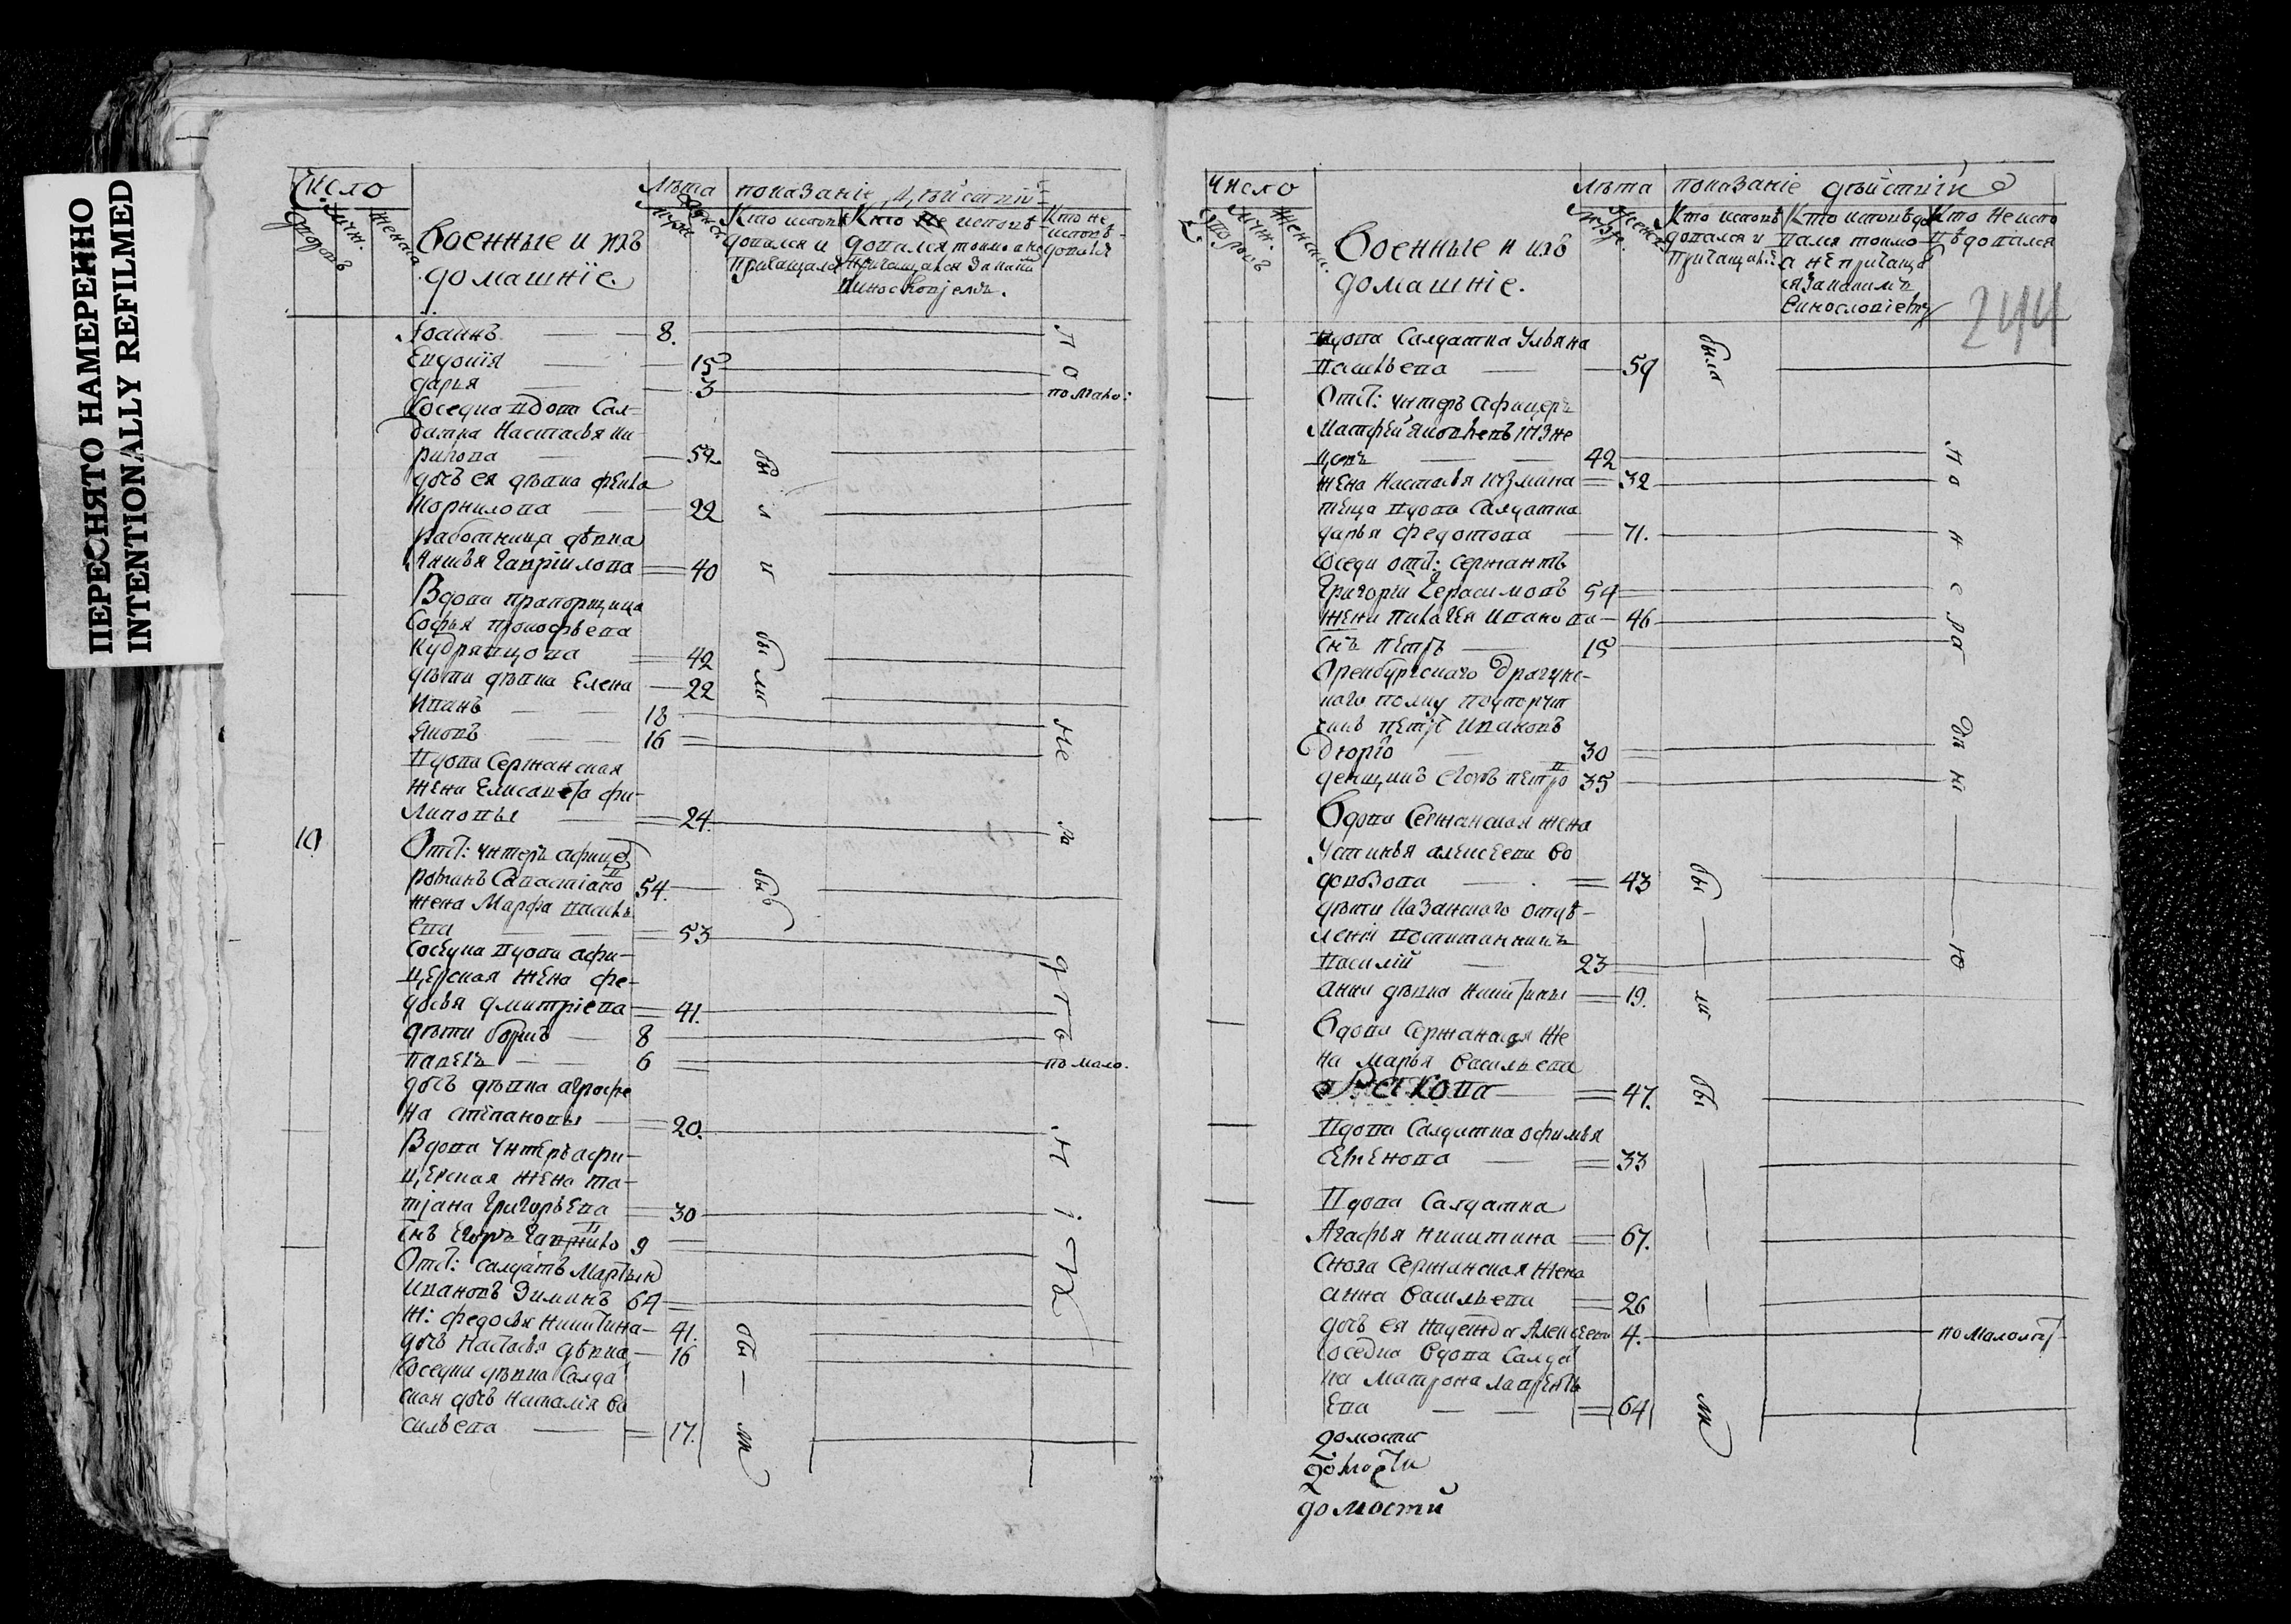 ПЕРЕСНЯТО НАМЕРЕННО
INTENTIONALLY REFILMED
Число
Лѣта
показаніе дѣйствій
Военные и ихъ
домашніе.
Кто исповѣ
довался и
причащался
Кто не исповѣ
довался токмо а не
причащался за каки
Кто не
исповѣ
довался
Іоаннъ 8.
Евдокія 15
дарья 3 по мало:
Соседка вдова Сал-
датка Настасья Ки
рилова 52
дочь ея дѣвка Фекла
Корнилова 22
Работница дѣвка
Гаврилова 40
Вдова прапорщица
Софья прокофьева
Кудрявцова 42
дѣти дѣвка Елена 22
Иванъ 18
Яковъ 16
Вдова Сержанская
жена Елисавета Фи-
липовы 24
10
Отс: унтеръ афице
54
жена Марфа Василь
ева 53
Соседка вдова афи-
церская жена Фе-
досья дмитріева 41.
дѣти борисъ 8
павелъ 6 по мало.
дочь дѣвка агрофе
на степановы 20.
Вдова Унтеръ афи-
церская жена та-
тіана Григорьева 30
снъ Егоръ Гаврило 9
Отс: салдатъ Мартын
Ивановъ Зиминъ 64
ж: федосья Никитина 41.
дочь Настасья дѣвка 16
Соседка дѣвка Салда
ская дочь Наталія Ва
сильева 17.
были
были
не
былъ
были
Число
Лѣта
показаніе дѣйствій
Военные и ихъ
домашніе.
Кто исповѣ
довался и
причащался
Кто исповѣдо
вался токмо
а не причаща
ся за каки
винословіемъ
Кто не испо
вѣдовался
244
Вдова Салдатка Ульяна
Васильева 59
была
Отс: унтеръ афицеръ
Матфей Яковлевъ
42
жена Настасья Кузмина 32
теща вдова Салдатка
дарья Федотова 71.
Соседи отс: сержантъ
Григорій Герасимовъ 54
жена Пелагея Иванова 46
снъ Петръ 15
Оренбургскаго драгунс-
каго полку подпоручи
Петръ Ивановъ
30
денщикъ Егоръ Петро 35
Вдова Сержанская жена
Устинья алексеева Во
43
дѣти Казанскаго отдѣ-
ленія воспитанникъ
Василій 23
анна дѣвка Никитины 19.
Вдова Сержанская же
на Марья Васильева
47.
Вдова Салдатка офимья
Семенова 33
Вдова Салдатка
Агафья Никитина 67.
Сноха Сержанская жена
анна Васильева 26
дочь ея надежда Алексеева 4. по малолѣт
Соседка вдова Салда
ка Матрона Лаврентъ
ева 64
были
были
домости
домости
домости